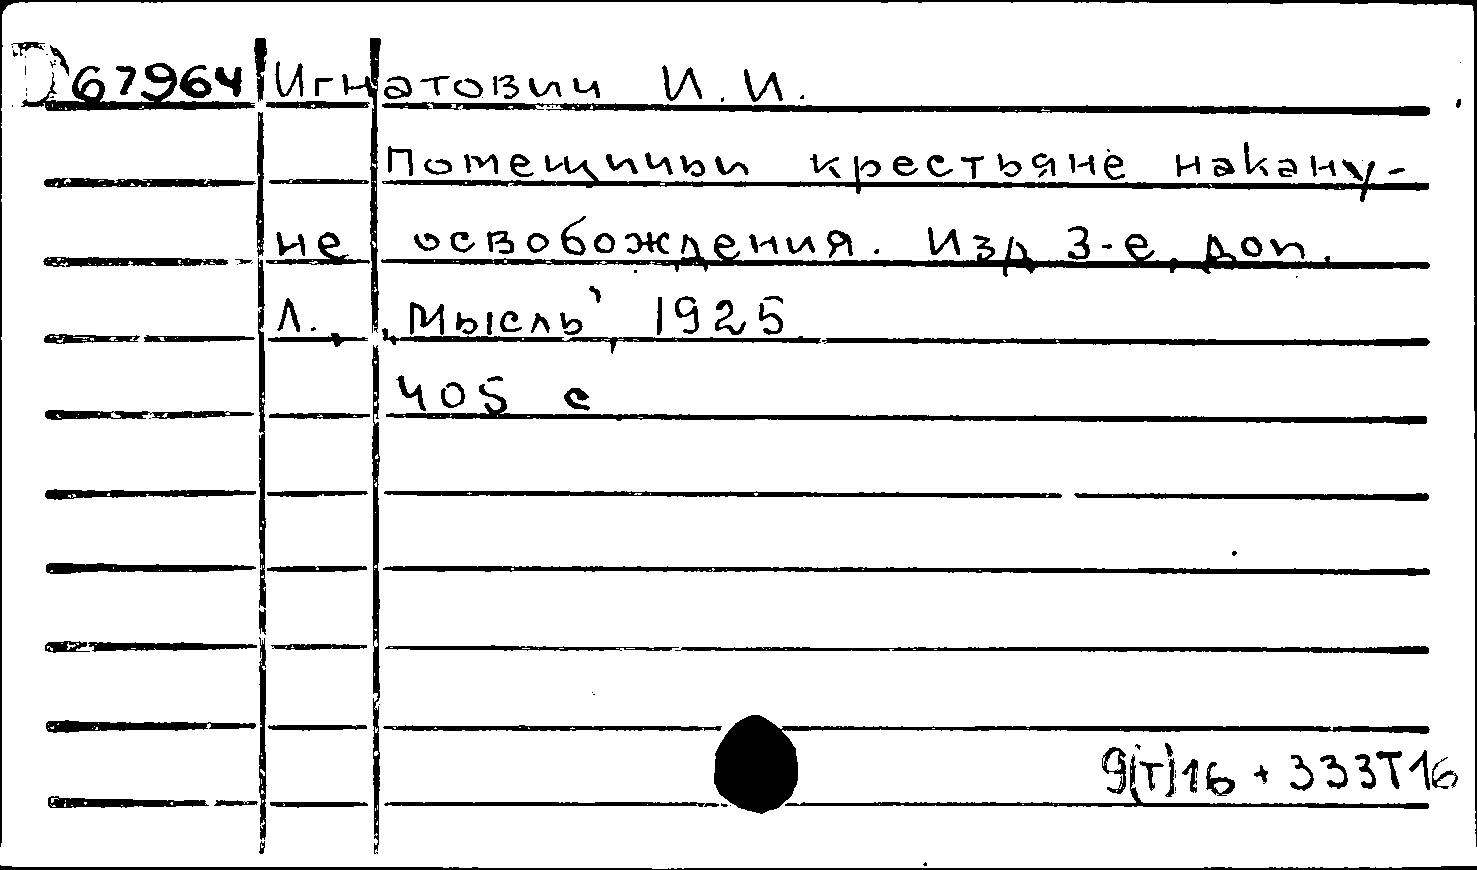 D 67964 Игнатович И. И.
Помещичьи крестьяне накану-
не освобождения. Изд 3-е, доп.
Л., „Мысль", 1925
405 с
9(Т)16 + 333Т16